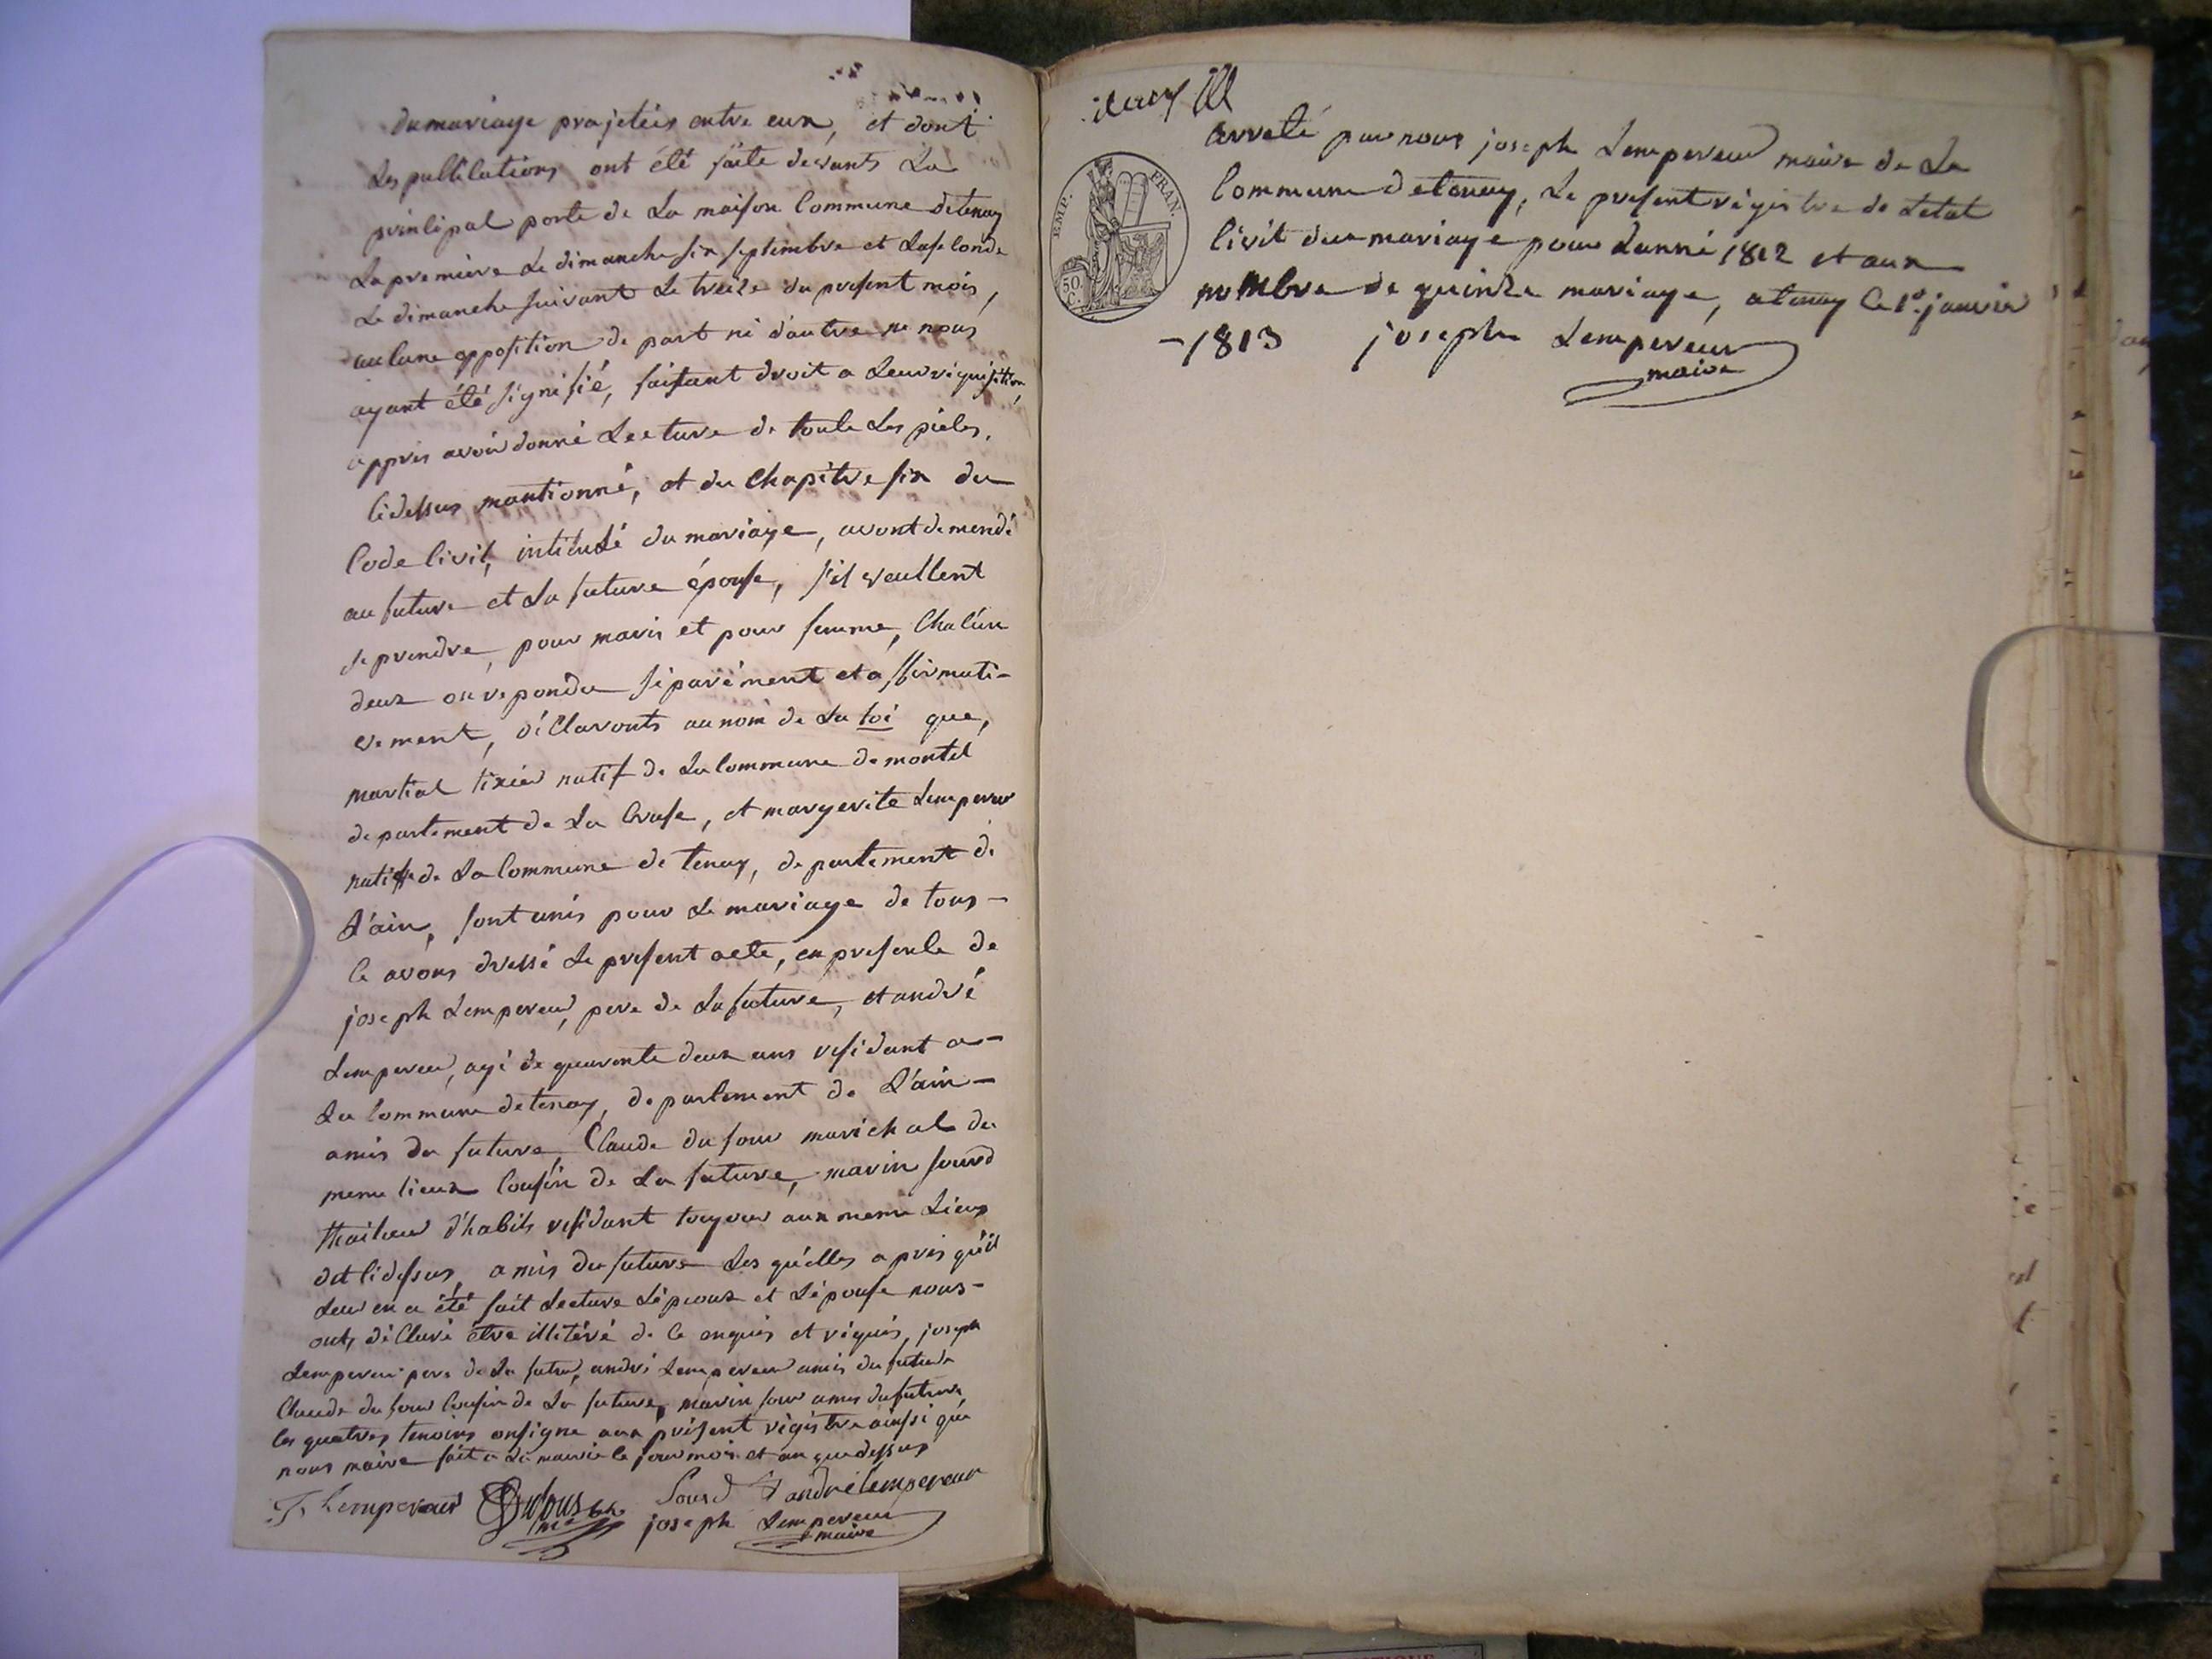 du mariage projetéis entre eux, et dont
Les publications ont été faite devants La
principal porte de La maison Commune detenay
La premiere Le dimanche six septembre et Laseconde
Le dimanche suivant Le treize du present mois,
aucune opposition de part ni d'autre ne nous
ayant été signifié, faisant droit a Leur réquisition,
appres avoir donné Lecture de toute Les pieces,
cidessus mantionné, et du Chapitre six du
Code Civil, intitulé du mariage, avont demendé
au future et La future épouse, s'il veullent
se prendre, pour maris et pour femme, Chacun
deux on repondu séparément et affirmati-
vement, déClaronts au nom de La loi que,
martial tixier natif de La Commune de montel
departement de La Creuse, et margerite Lempereur
natiffe de La Commune de tenay, departement de
L'ain, sont unis pour Le mariage de tous-
Ce avons dressé Le present acte, en presence de
joseph Lempereur, pere de La future, et andré
Lempereur, agé de quaronte deux ans residant a-
La Commune detenay, departement de L'ain-
amis du future, Claude dufour marichal du
meme lieux Cousin de La future, marin sourd
thailleur d'habits residant toujour aux meme Lieux
dit cidessus, amis du future Les quélles apres qu'il
Leur en a été fait Lecture L'époux et L'épouse nous-
onts déClaré être illitéré de Ce enquis et réquis, joseph
Lempereur pere de La future, andré Lempereur amis du future
Claude dufour Cousin de La future, marin sour amis dufuture,
les quatres temoins onsigne aux présent régistre ainssi que
nous maire fait a La mairie le jour mois et an que dessus
J Lempereur Dufour Sourd andré lempereur
joseph Lempereur
maire
EMP. FRAN.
50 C.
arreté par nous joseph Lempereur maire de La
Commune detenay, Le present régistre de Letat
Civil du mariage pour Lanné 1812 et aux
nombre de quinze mariage, a tenay le 1er. janvier
-1813 joseph Lempereur
maire